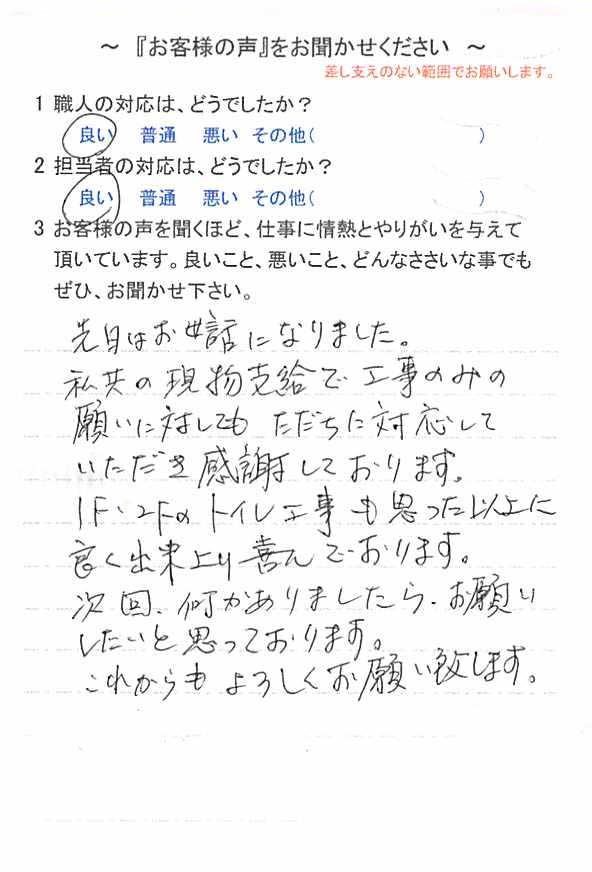 ～ 『お客様の声』をお聞かせください ～
差し支えのない範囲でお願いします。
1 職人の対応は、どうでしたか？
良い 普通 悪い その他( )
2 担当者の対応は、どうでしたか？
良い 普通 悪い その他( )
3 お客様の声を聞くほど、仕事に情熱とやりがいを与えて
頂いています。良いこと、悪いこと、どんなささいな事でも
ぜひ、お聞かせ下さい。
先日はお世話になりました。
私共の現物支給で工事のみの
願いに対しても ただちに対応して
いただき感謝しております。
1F・2Fのトイレ工事も思った以上に
良く出来上り喜んでおります。
次回、何かありましたら、お願い
したいと思っております。
これからもよろしくお願い致します。